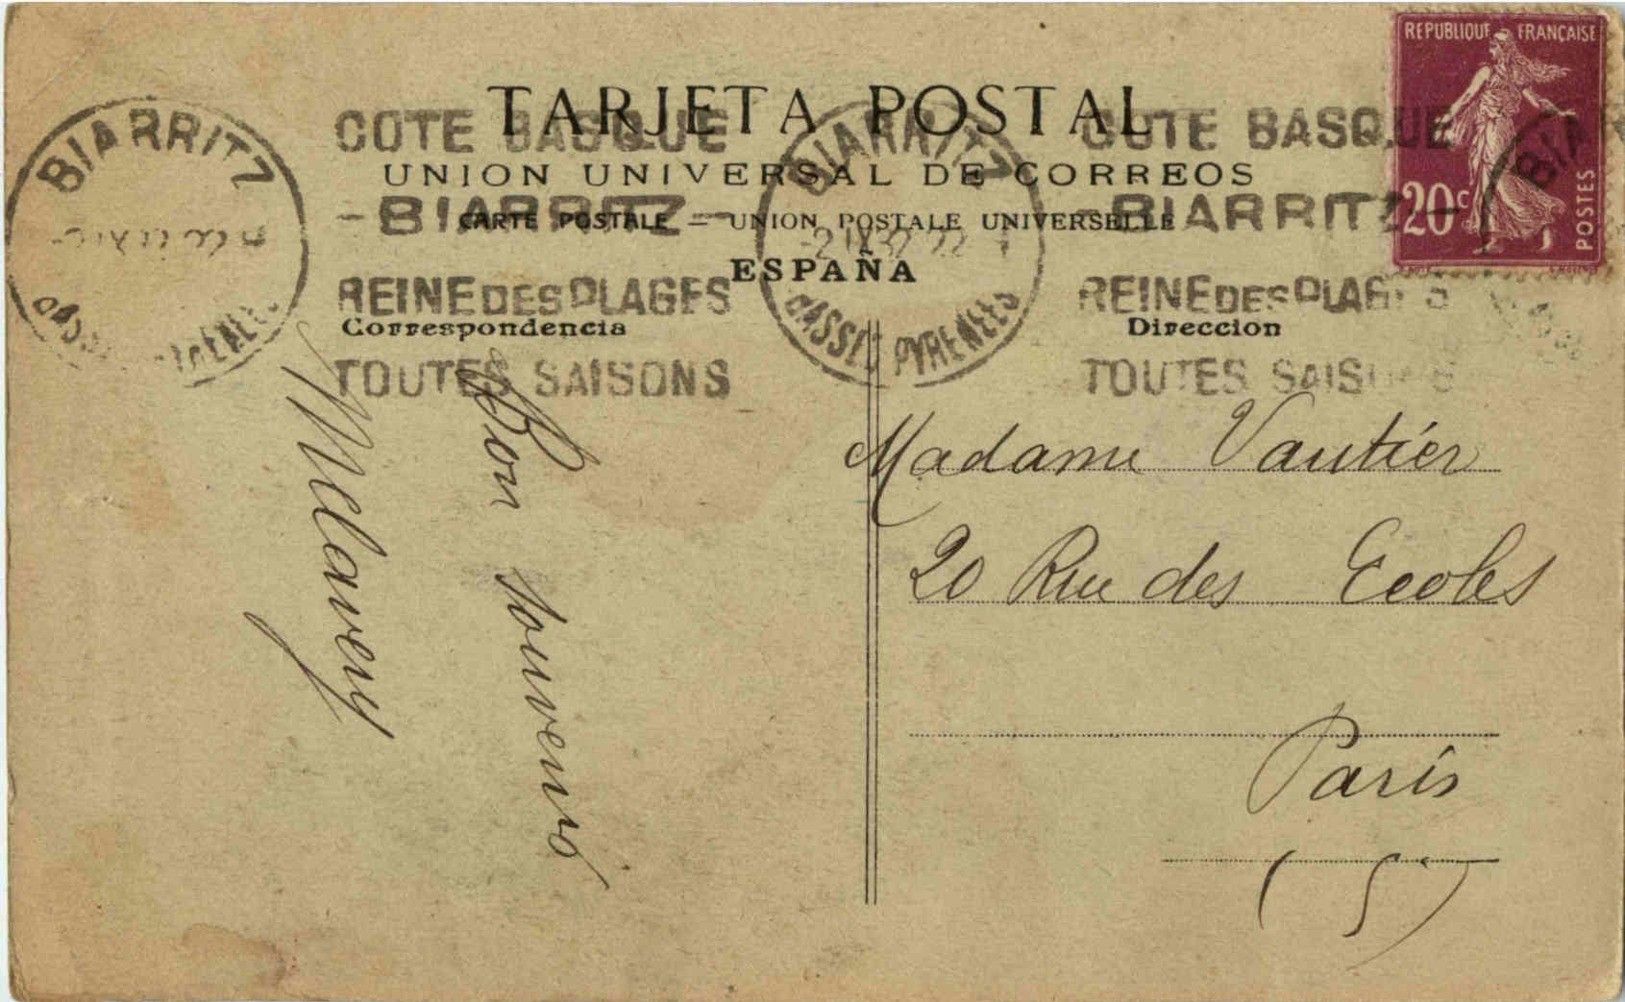 TARJETA POSTAL
UNION UNIVERSAL DE CORREOS
CARTE POSTALE = UNION POSTALE UNIVERSELLE
ESPAÑA
Correspondencia
Direccion
REPUBLIQUE FRANÇAISE
20c
POSTES
BIARRITZ
COTE BASQUE
-BIARRITZ-
REINE DES PLAGES
TOUTES SAISONS
BIARRITZ
-2 IX 32 22
BASSES PYRENEES
COTE BASQUE
-BIARRITZ-
REINE DES PLAGES
TOUTES SAISONS
BIAR
Bon souvenir
Madame Vautier
20 Rue des Ecoles
Paris
(5)